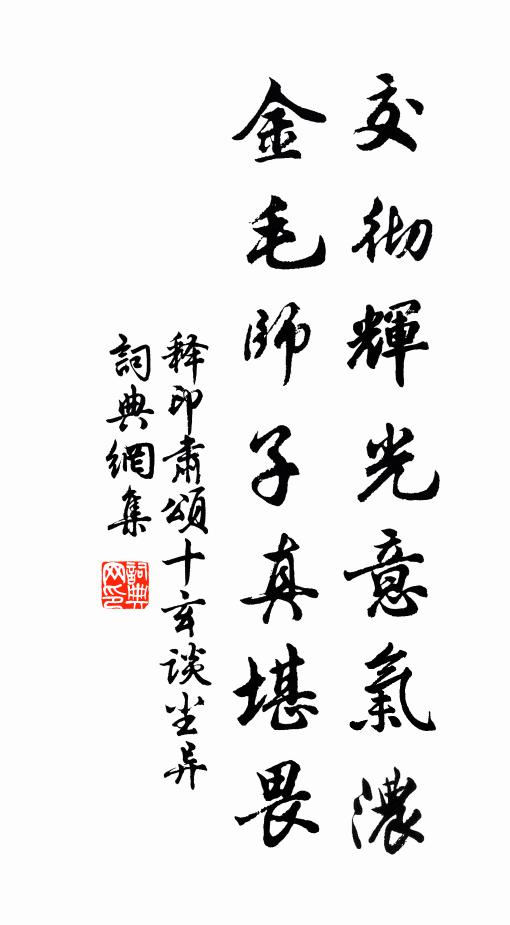 交彻輝光意氣濃
金毛師子真堪畏
释印肅頌十玄谈尘异
詞典網集
詞典网印